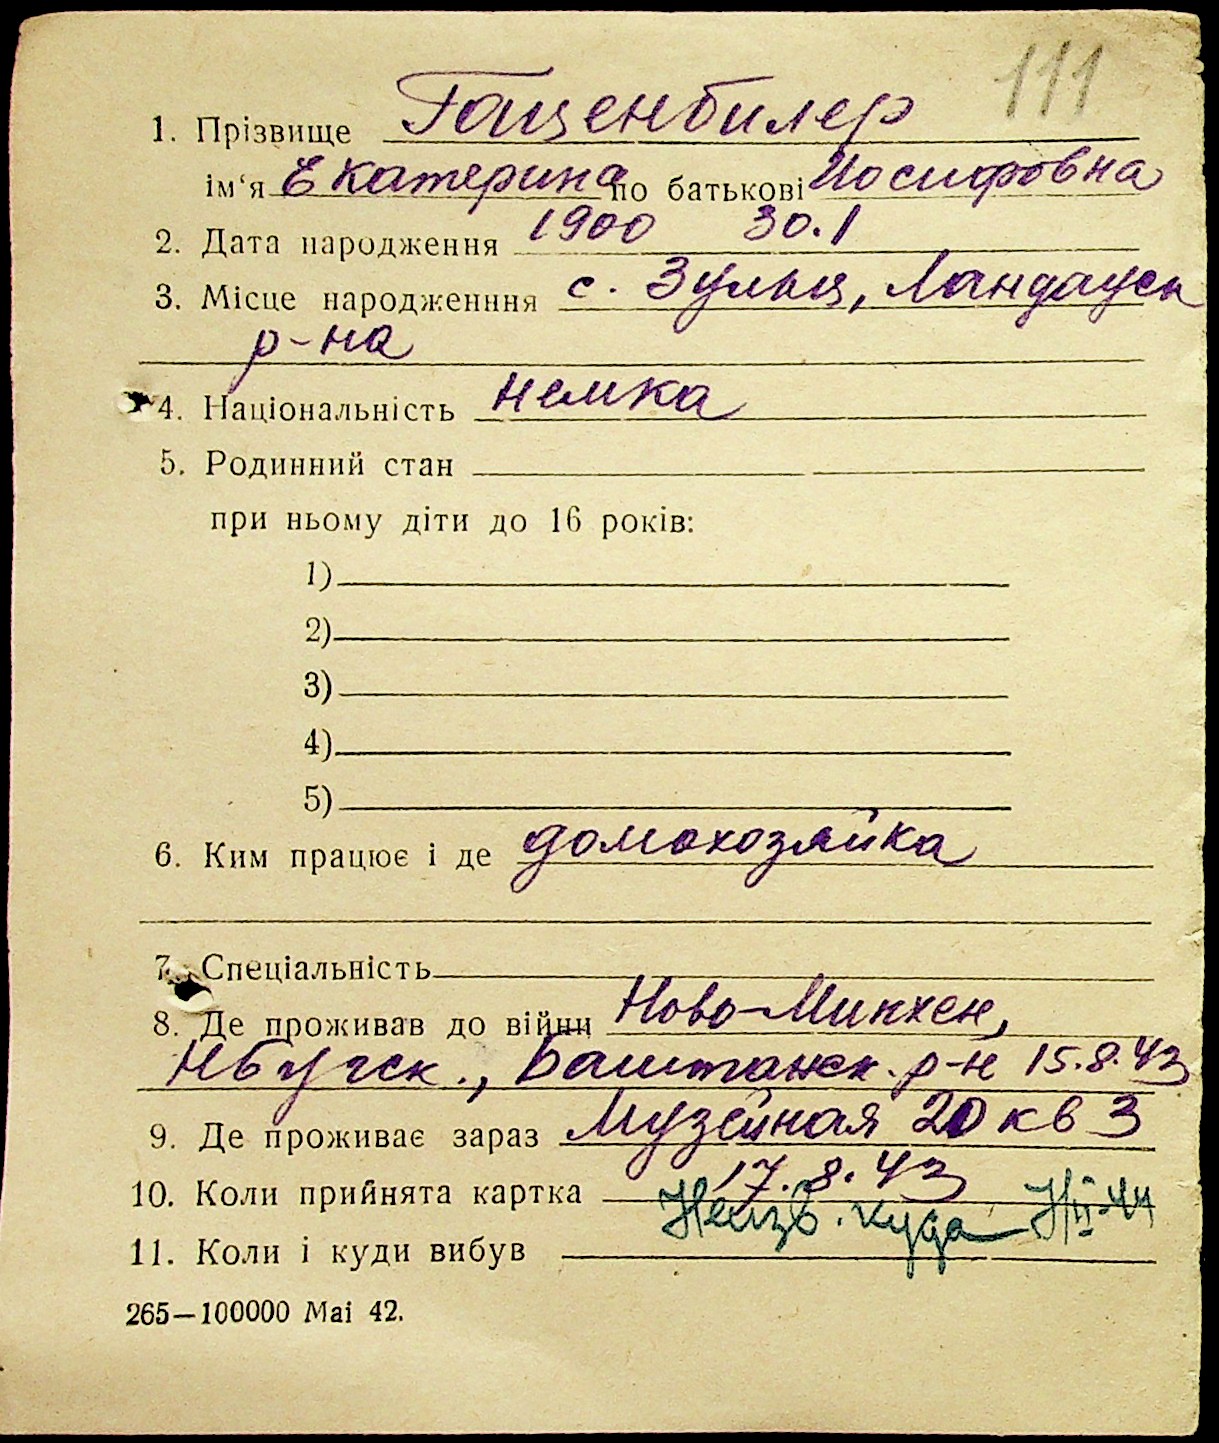 111
1. Прізвище Гаценбилер
ім‘я Екатерина по батькові Иосифовна
2. Дата народження 1900 30.1
3. Місце народженння с. Зульц, Ландауск
р-на
4. Національність немка
5. Родинний стан
при ньому діти до 16 років:
1)
2)
3)
4)
5)
6. Ким працює і де домохозяйка
7. Спеціальність
8. Де проживав до війни Ново-Мюнхен,
Баштанск. р-н 15.8.43
9. Де проживає зараз Музейная 20 кв 3
10. Коли прийнята картка 17.8.43
11. Коли і куди вибув Неизв. куда
265—100000 Mai 42.